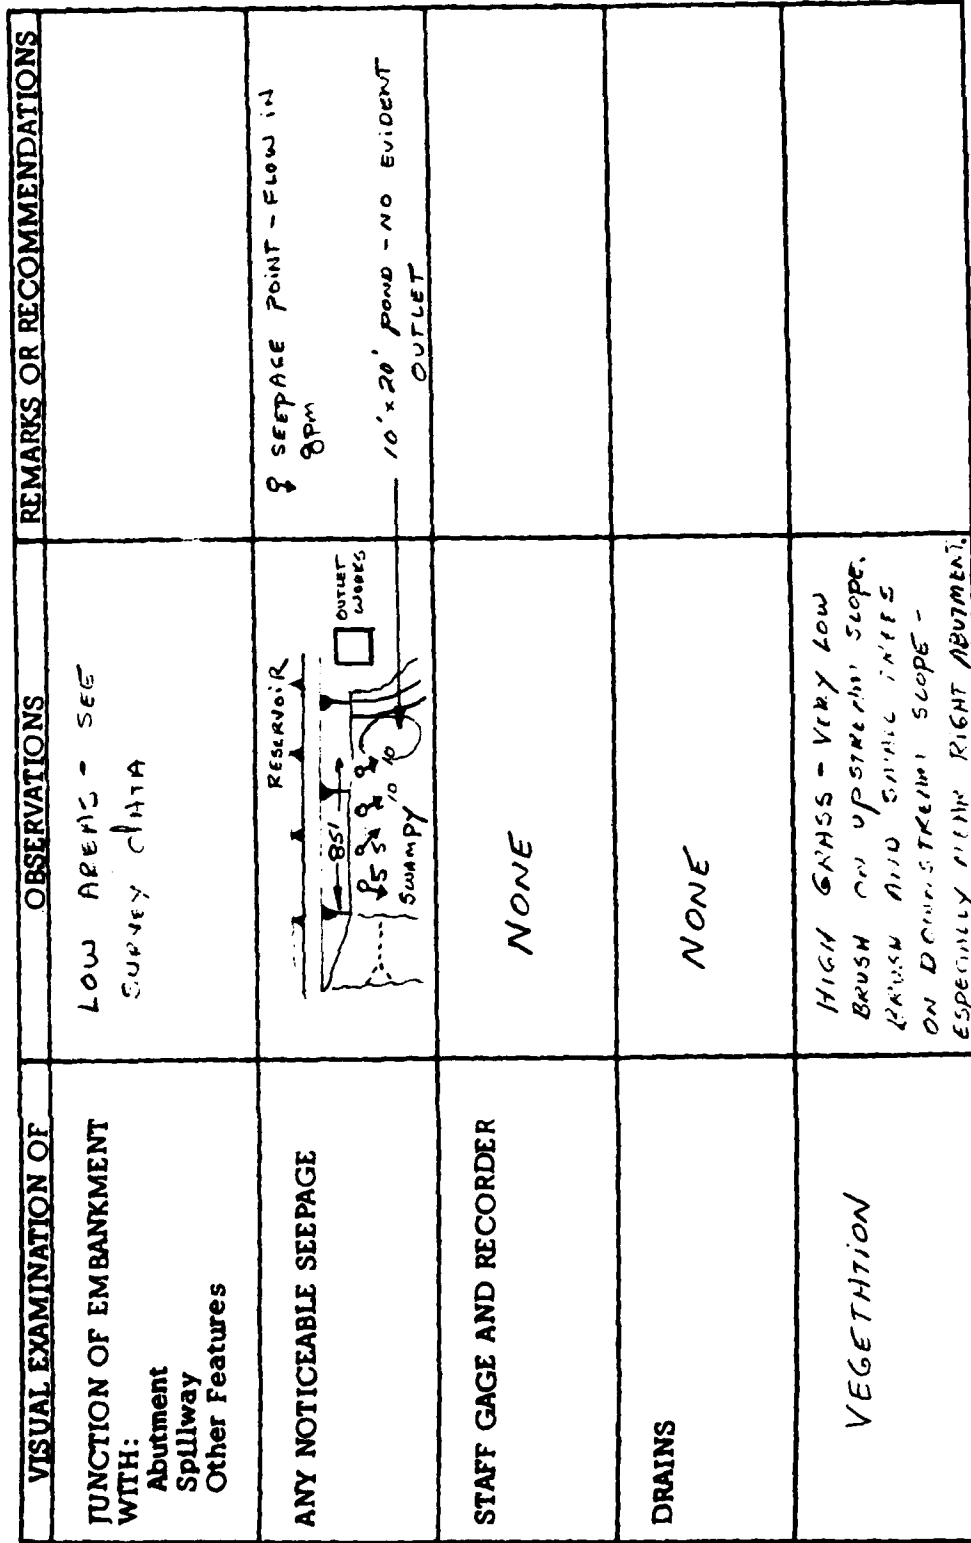 VISUAL EXAMINATION OF
OBSERVATIONS
REMARKS OR RECOMMENDATIONS
JUNCTION OF EMBANKMENT
WITH:
Abutment
Spillway
Other Features
LOW AREAS - SEE
SURVEY DATA
ANY NOTICEABLE SEEPAGE
RESERVOIR
OUTLET
WORKS
85'
5 5 10 10
SWAMPY
SEEPAGE POINT - FLOW IN
gpm
10' x 20' POND - NO EVIDENT
OUTLET
STAFF GAGE AND RECORDER
NONE
DRAINS
NONE
VEGETATION
HIGH GRASS - VERY LOW
BRUSH ON UPSTREAM SLOPE.
BRUSH AND SMALL TREES
ON DOWNSTREAM SLOPE -
ESPECIALLY NEAR RIGHT ABUTMENT.